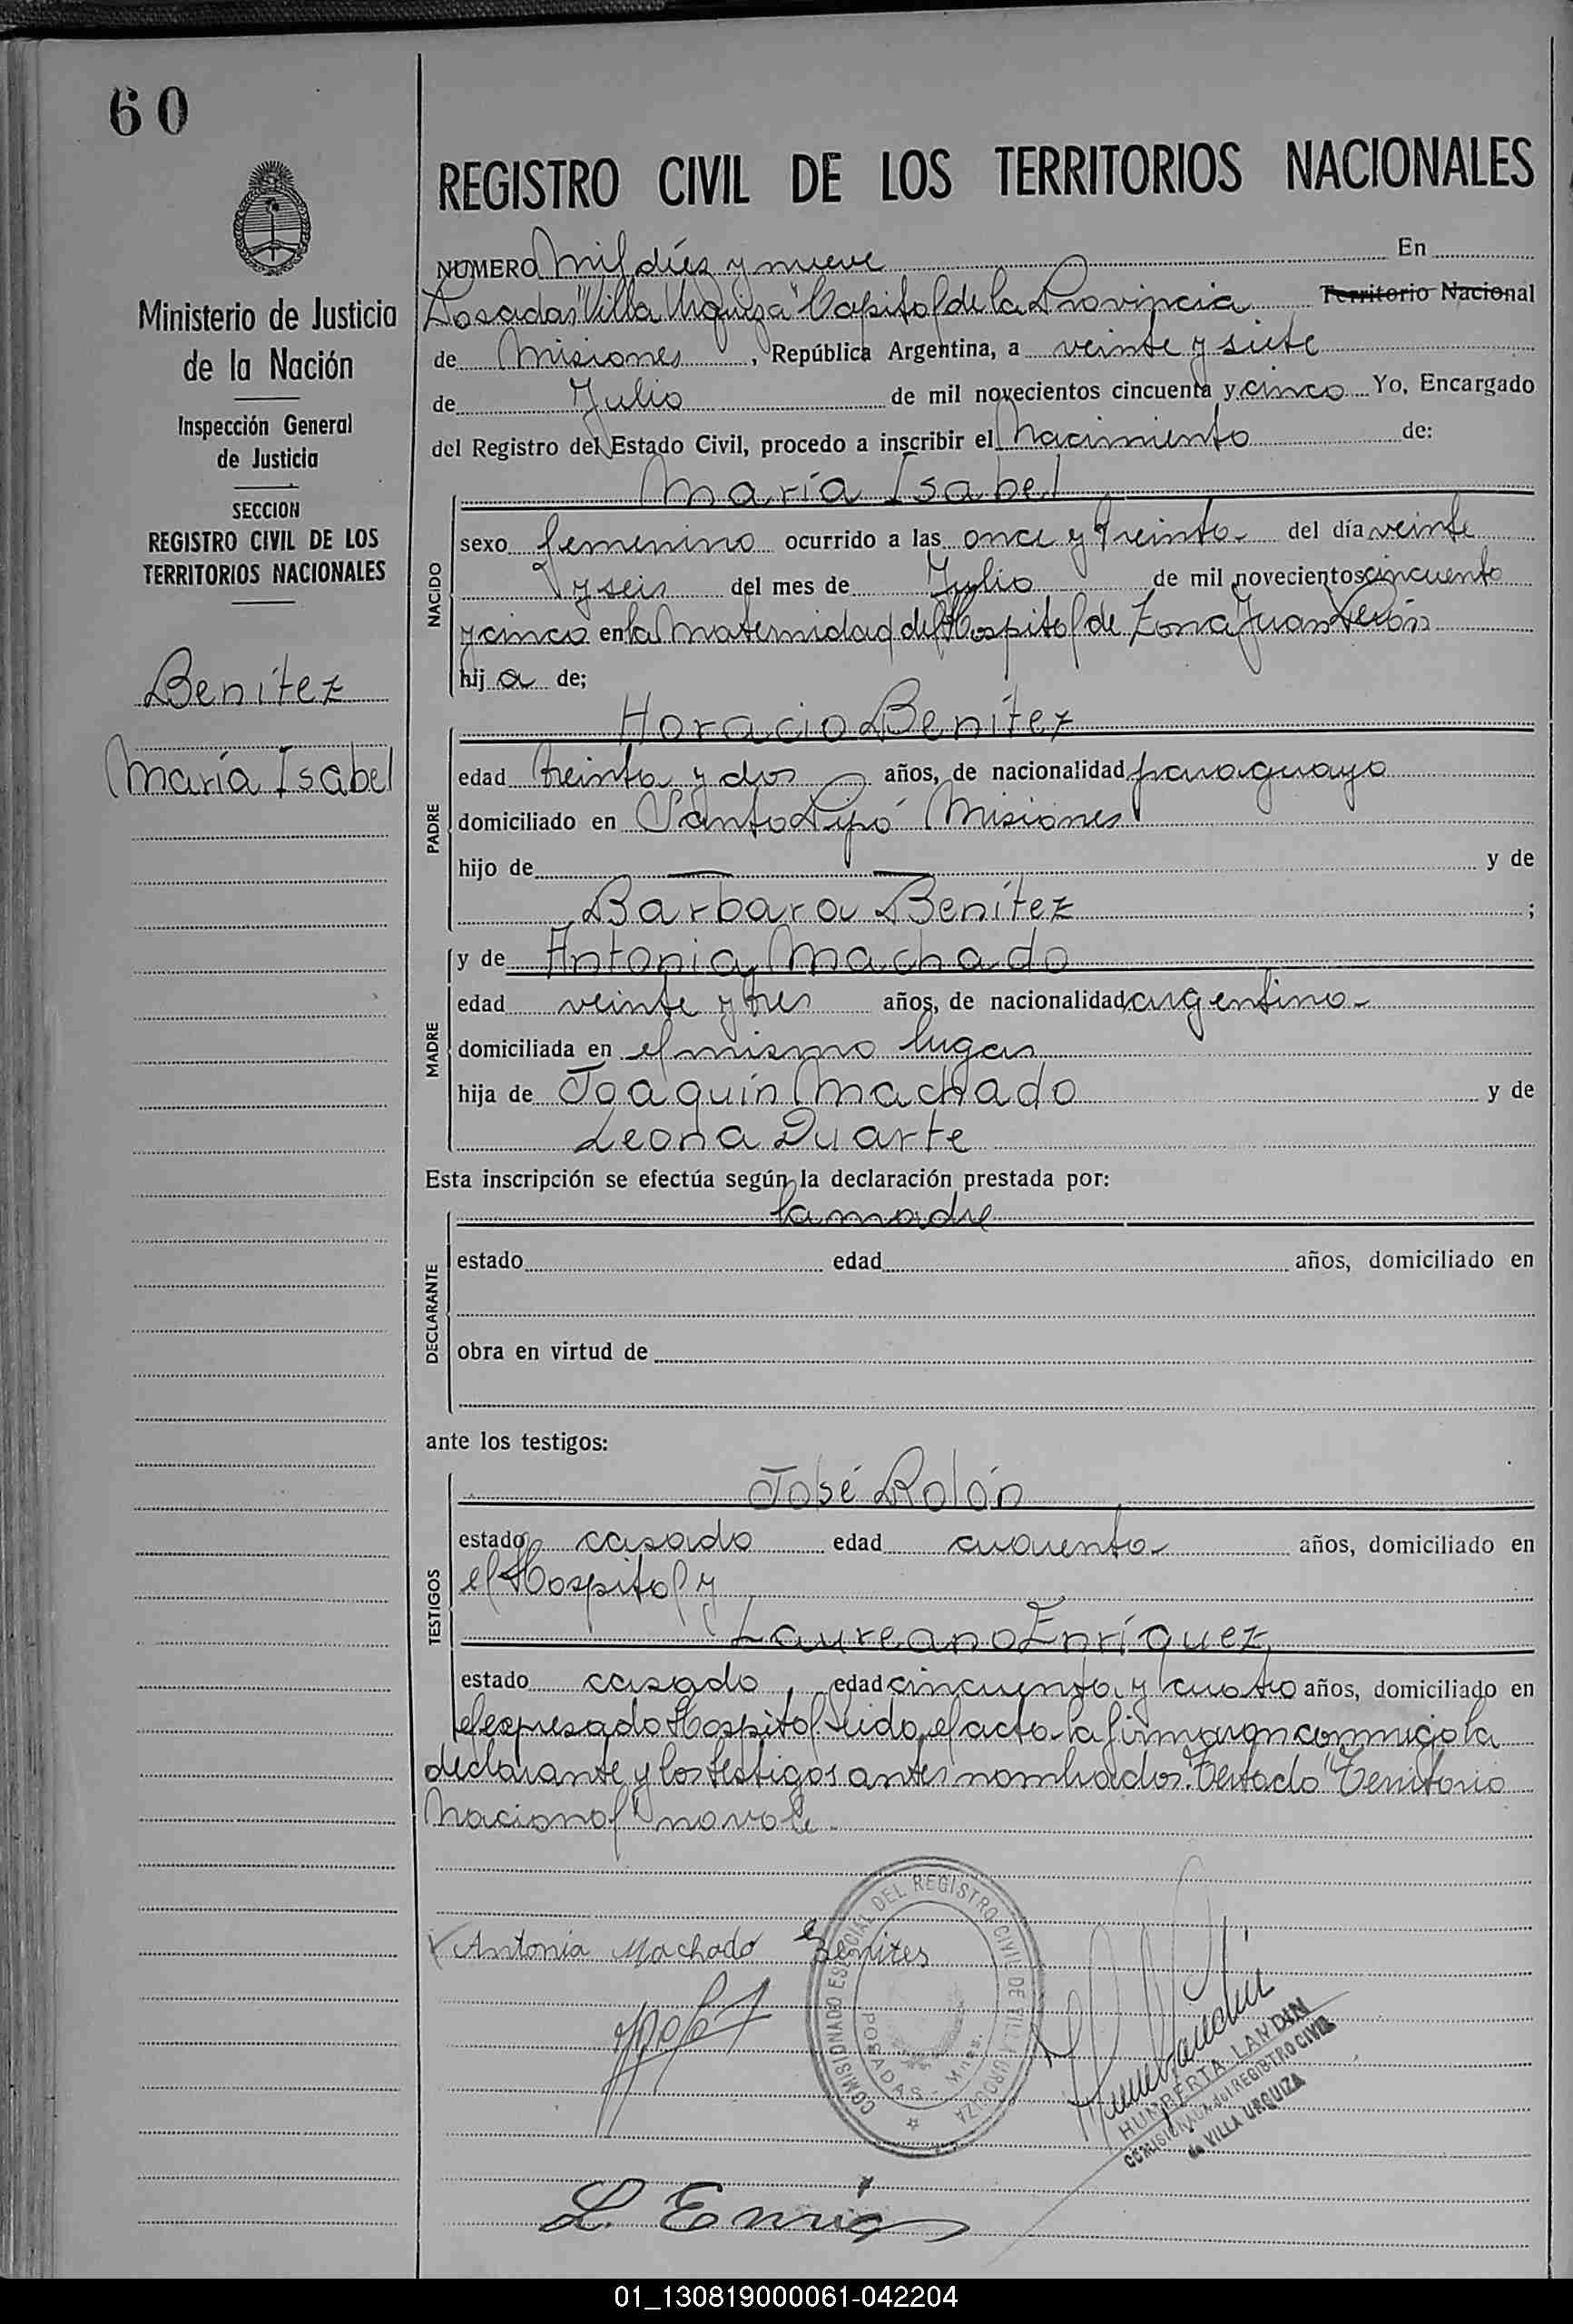 60
REGISTRO CIVIL DE LOS TERRITORIOS NACIONALES
Ministerio de Justicia
de la Nación
Inspección General
de Justicia
SECCION
REGISTRO CIVIL DE LOS
TERRITORIOS NACIONALES
Benítez
María Isabel
NUMERO Mil diez y nueve En
Posadas "Villa Urquiza" Capital de la Provincia Territorio Nacional
de Misiones, República Argentina, a veinte y siete
de Julio de mil novecientos cincuenta y cinco Yo, Encargado
del Registro del Estado Civil, procedo a inscribir el Nacimiento de:
María Isabel
NACIDO
sexo femenino ocurrido a las once y treinta del día veinte
y seis del mes de Julio de mil novecientos cincuenta
y cinco en la Maternidad del Hospital de Zona Juan Perón
hija de;
Horacio Benítez
PADRE
edad treinta y dos años, de nacionalidad paraguayo
domiciliado en Santo Pipó Misiones
hijo de y de
Bárbara Benítez ;
y de Antonia Machado
MADRE
edad veinte y tres años, de nacionalidad argentina
domiciliada en el mismo lugar
hija de Joaquín Machado y de
Leona Duarte
Esta inscripción se efectúa según la declaración prestada por:
la madre
DECLARANTE
estado edad años, domiciliado en
obra en virtud de
ante los testigos:
José Rolón
TESTIGOS
estado casado edad cuarenta años, domiciliado en
el Hospital y
Laureano Enríquez
estado casado, edad cincuenta y cuatro años, domiciliado en
el expresado Hospital. Leida el acta la firmaron conmigo la
declarante y los testigos antes nombrados. Testado "Territorio
Nacional" no vale
Antonia Machado de Benites
COMISIONADO ESPECIAL DEL REGISTRO CIVIL DE VILLA URQUIZA
POSADAS - Mnes.
HUMBERTA LANDIN
COMISIONADA del REGISTRO CIVIL
de VILLA URQUIZA
L. Enriq
01_130819000061-042204